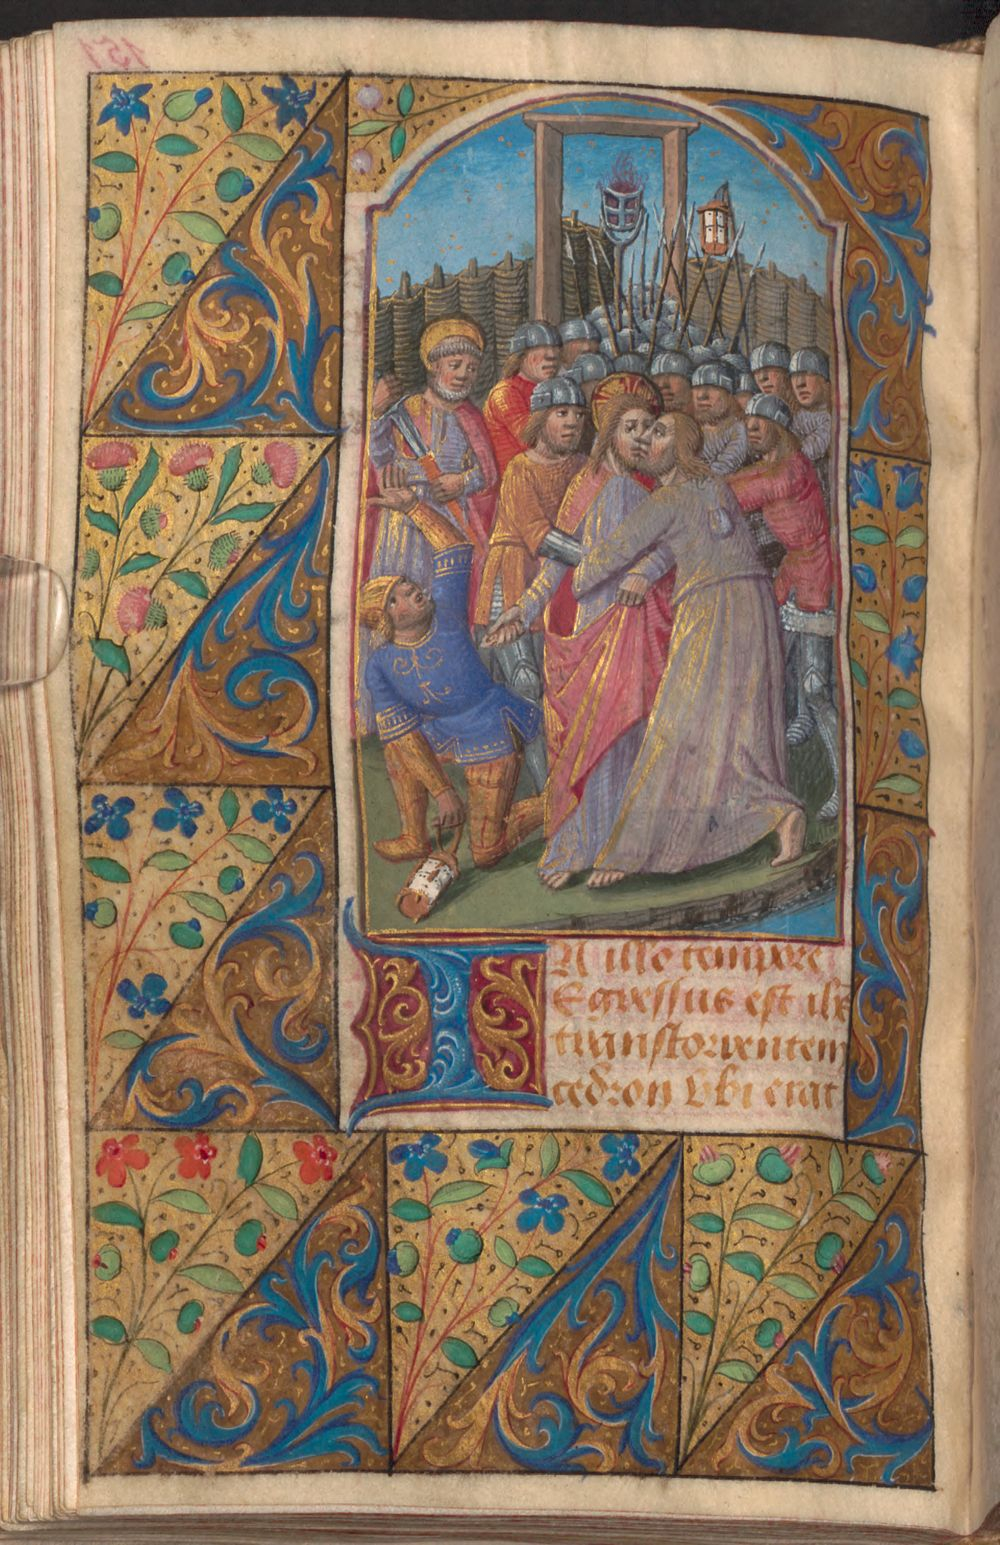 151
IN illo tempore
Egressus est ihs
transtorrentem
cedron Vbi erat